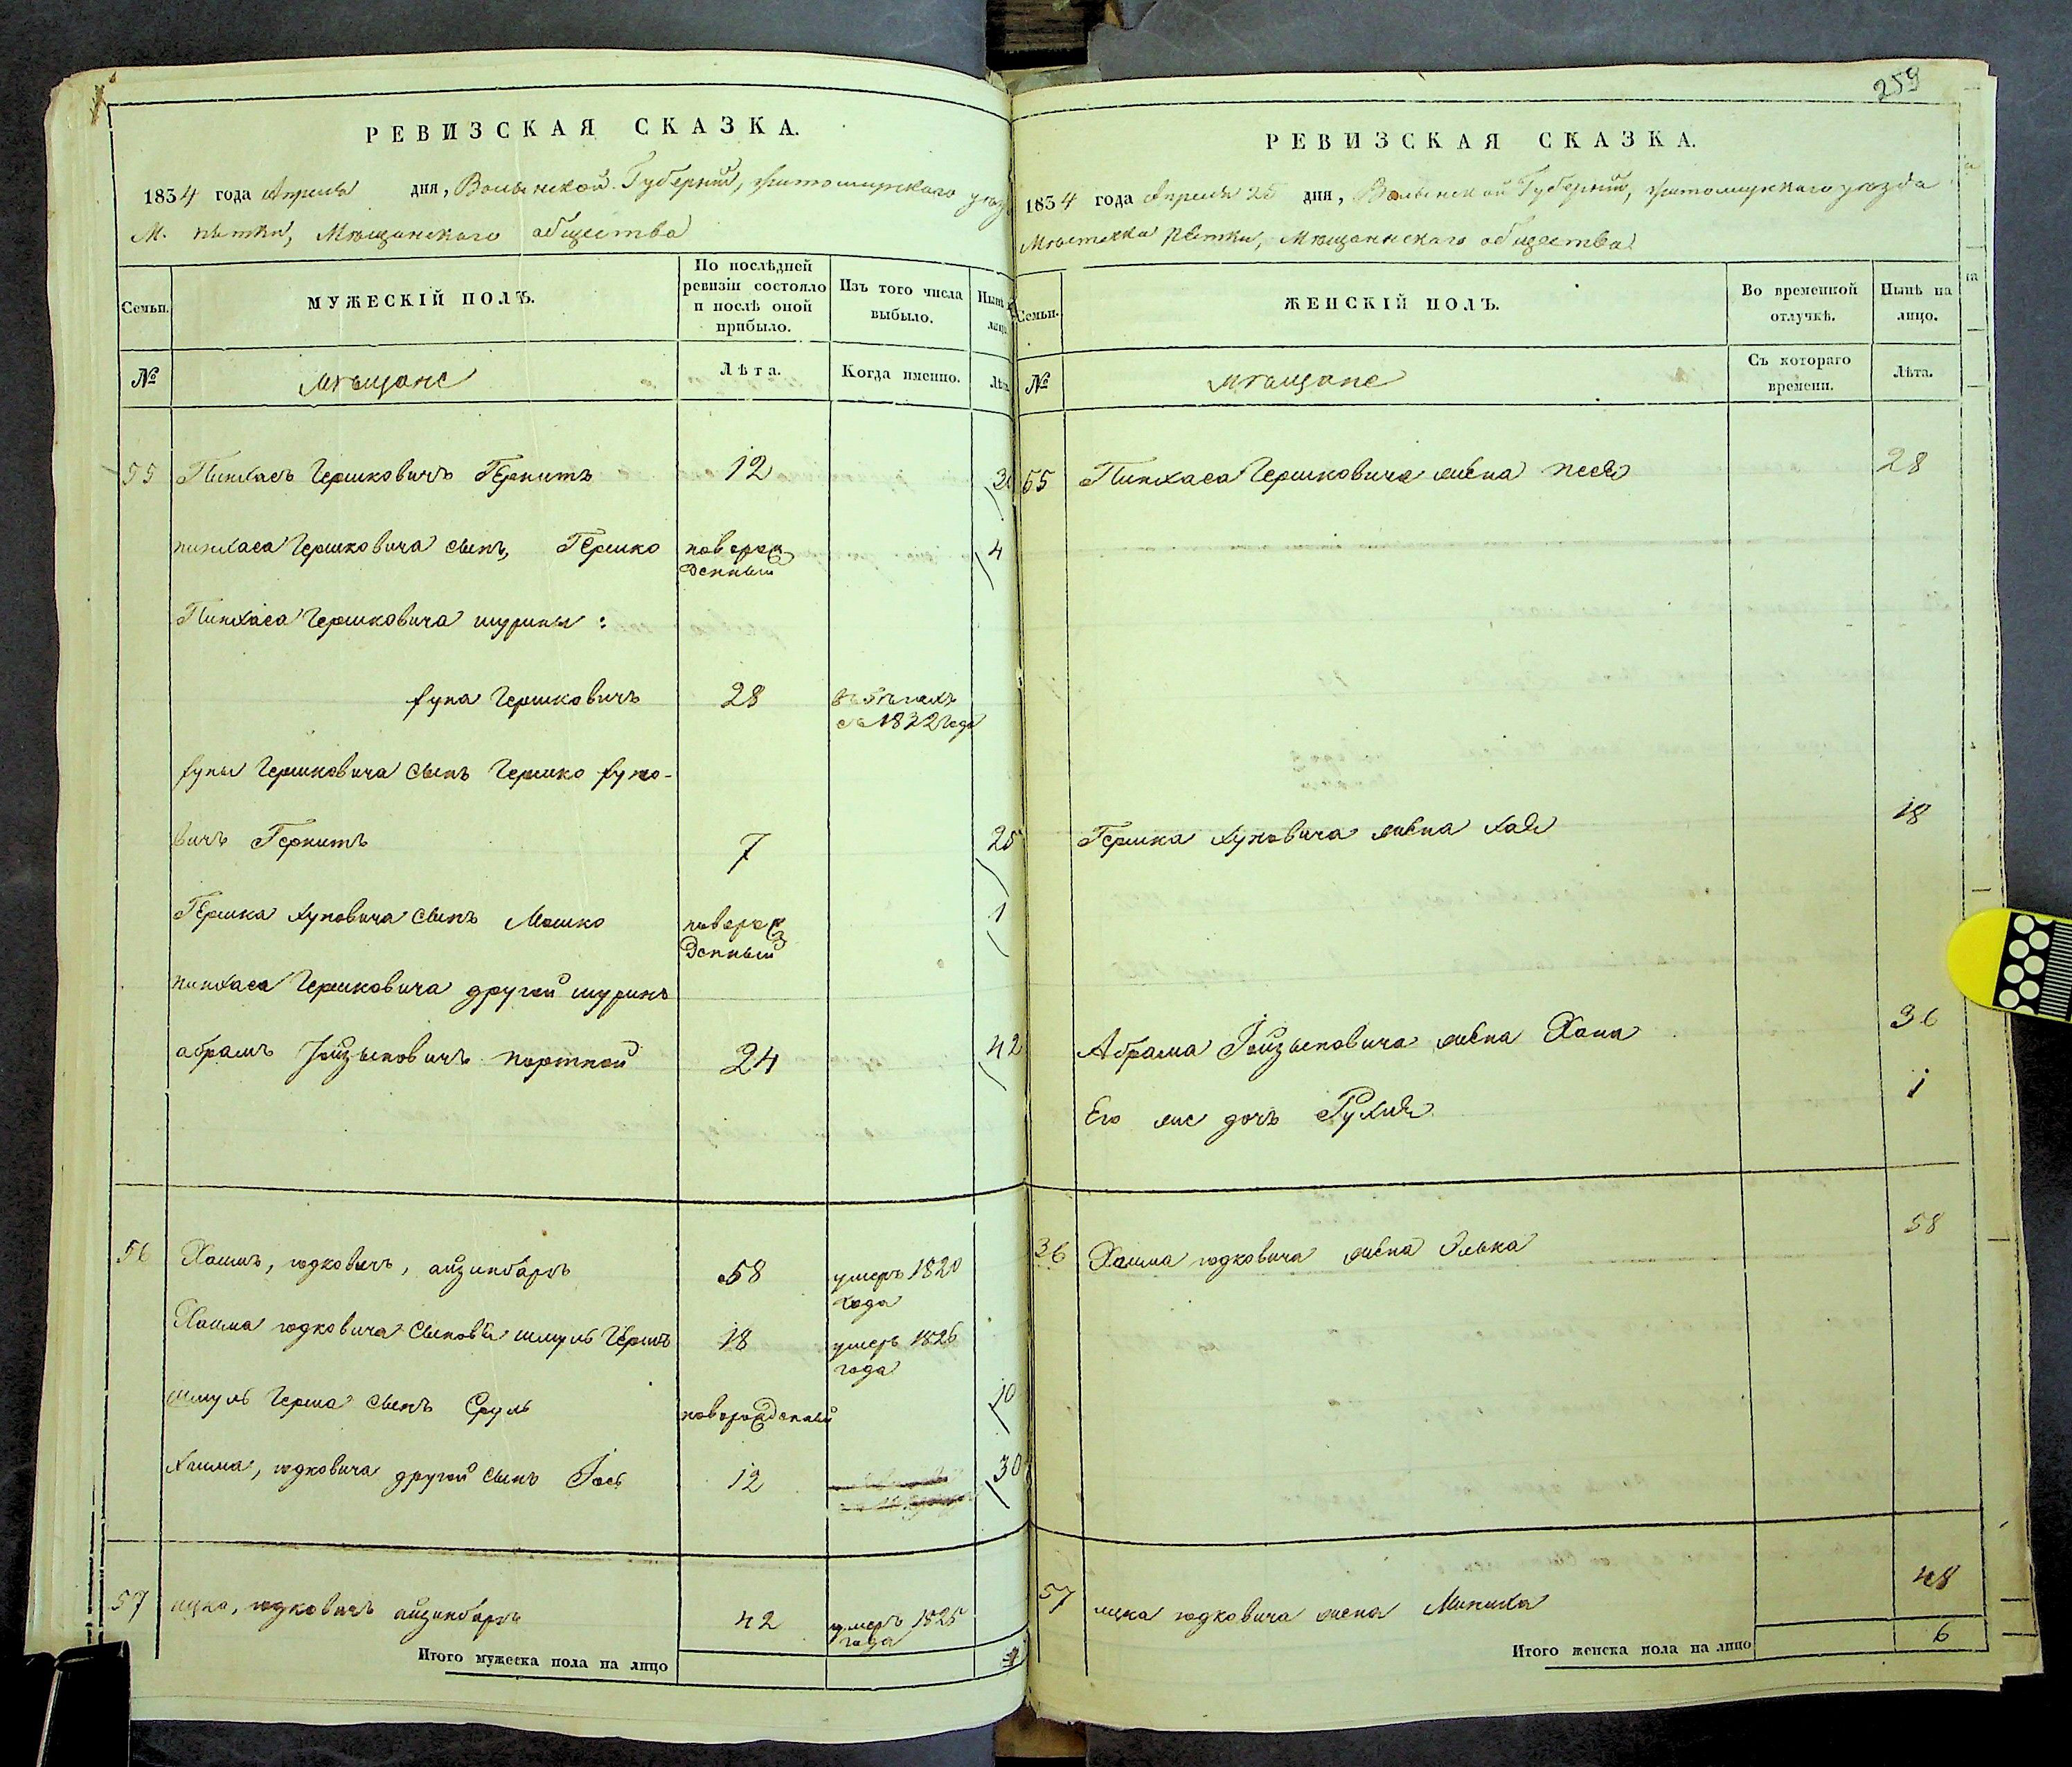 РЕВИЗСКАЯ СКАЗКА.
1834 года Апреля дня, Волынской Губернии, Житомирского уезд
М. Пятки, Мещанского общества
Семьи. МУЖЕСКІЙ ПОЛЪ. По послѣдней ревизіи состояло и послѣ оной прибыло. Изъ того числа выбыло. Нынѣ лицо
№ Мѣщане Лѣта. Когда именно. Лѣт
55 Пинхасъ Гершковичъ 12
Пинхаса Гершковича сынъ, Гершко новорож 4
денный
Пинхаса Гершковича шурины:
Хуна Гершковичъ 28 въ бѣгахъ
съ 1832 года
Хуны Гершковича сынъ Гершко Хуно-
вичъ 7 25
Гершка Хуновича сынъ Мошко новорож 1
денный
Пинхаса Гершковича другой шуринъ
Абрамъ портной 24 42
56 Хаимъ, Юдковичъ, 58 умеръ 1820
года
Хаима Юдковича сыновья Шмуль Гершъ 18 умеръ 1826
года
Шмуль Герша сынъ Сруль новорожденный 10
Хаима, Юдковича другой сынъ Іось 12 30
57 Ицко, Юдковичъ 42 умеръ 1825
года
Итого мужеска пола на лицо
259
РЕВИЗСКАЯ СКАЗКА.
1834 года Апреля 25 дня, Волынской Губернии, Житомирского уезда
Местечка Пятки, Мещанского общества
Семьи. ЖЕНСКІЙ ПОЛЪ. Во временной отлучкѣ. Нынѣ на лицо.
№ Мѣщане Съ котораго времени. Лѣта.
55 Пинхаса Гершковича жена Песя 28
Гершка Хуновича жена Хая 18
Абрама жена Хана 36
Его же дочь Рухля 1
36 Хаима Юдковича жена Элька 58
57 Ицка Юдковича жена 48
Итого женска пола на лицо 6